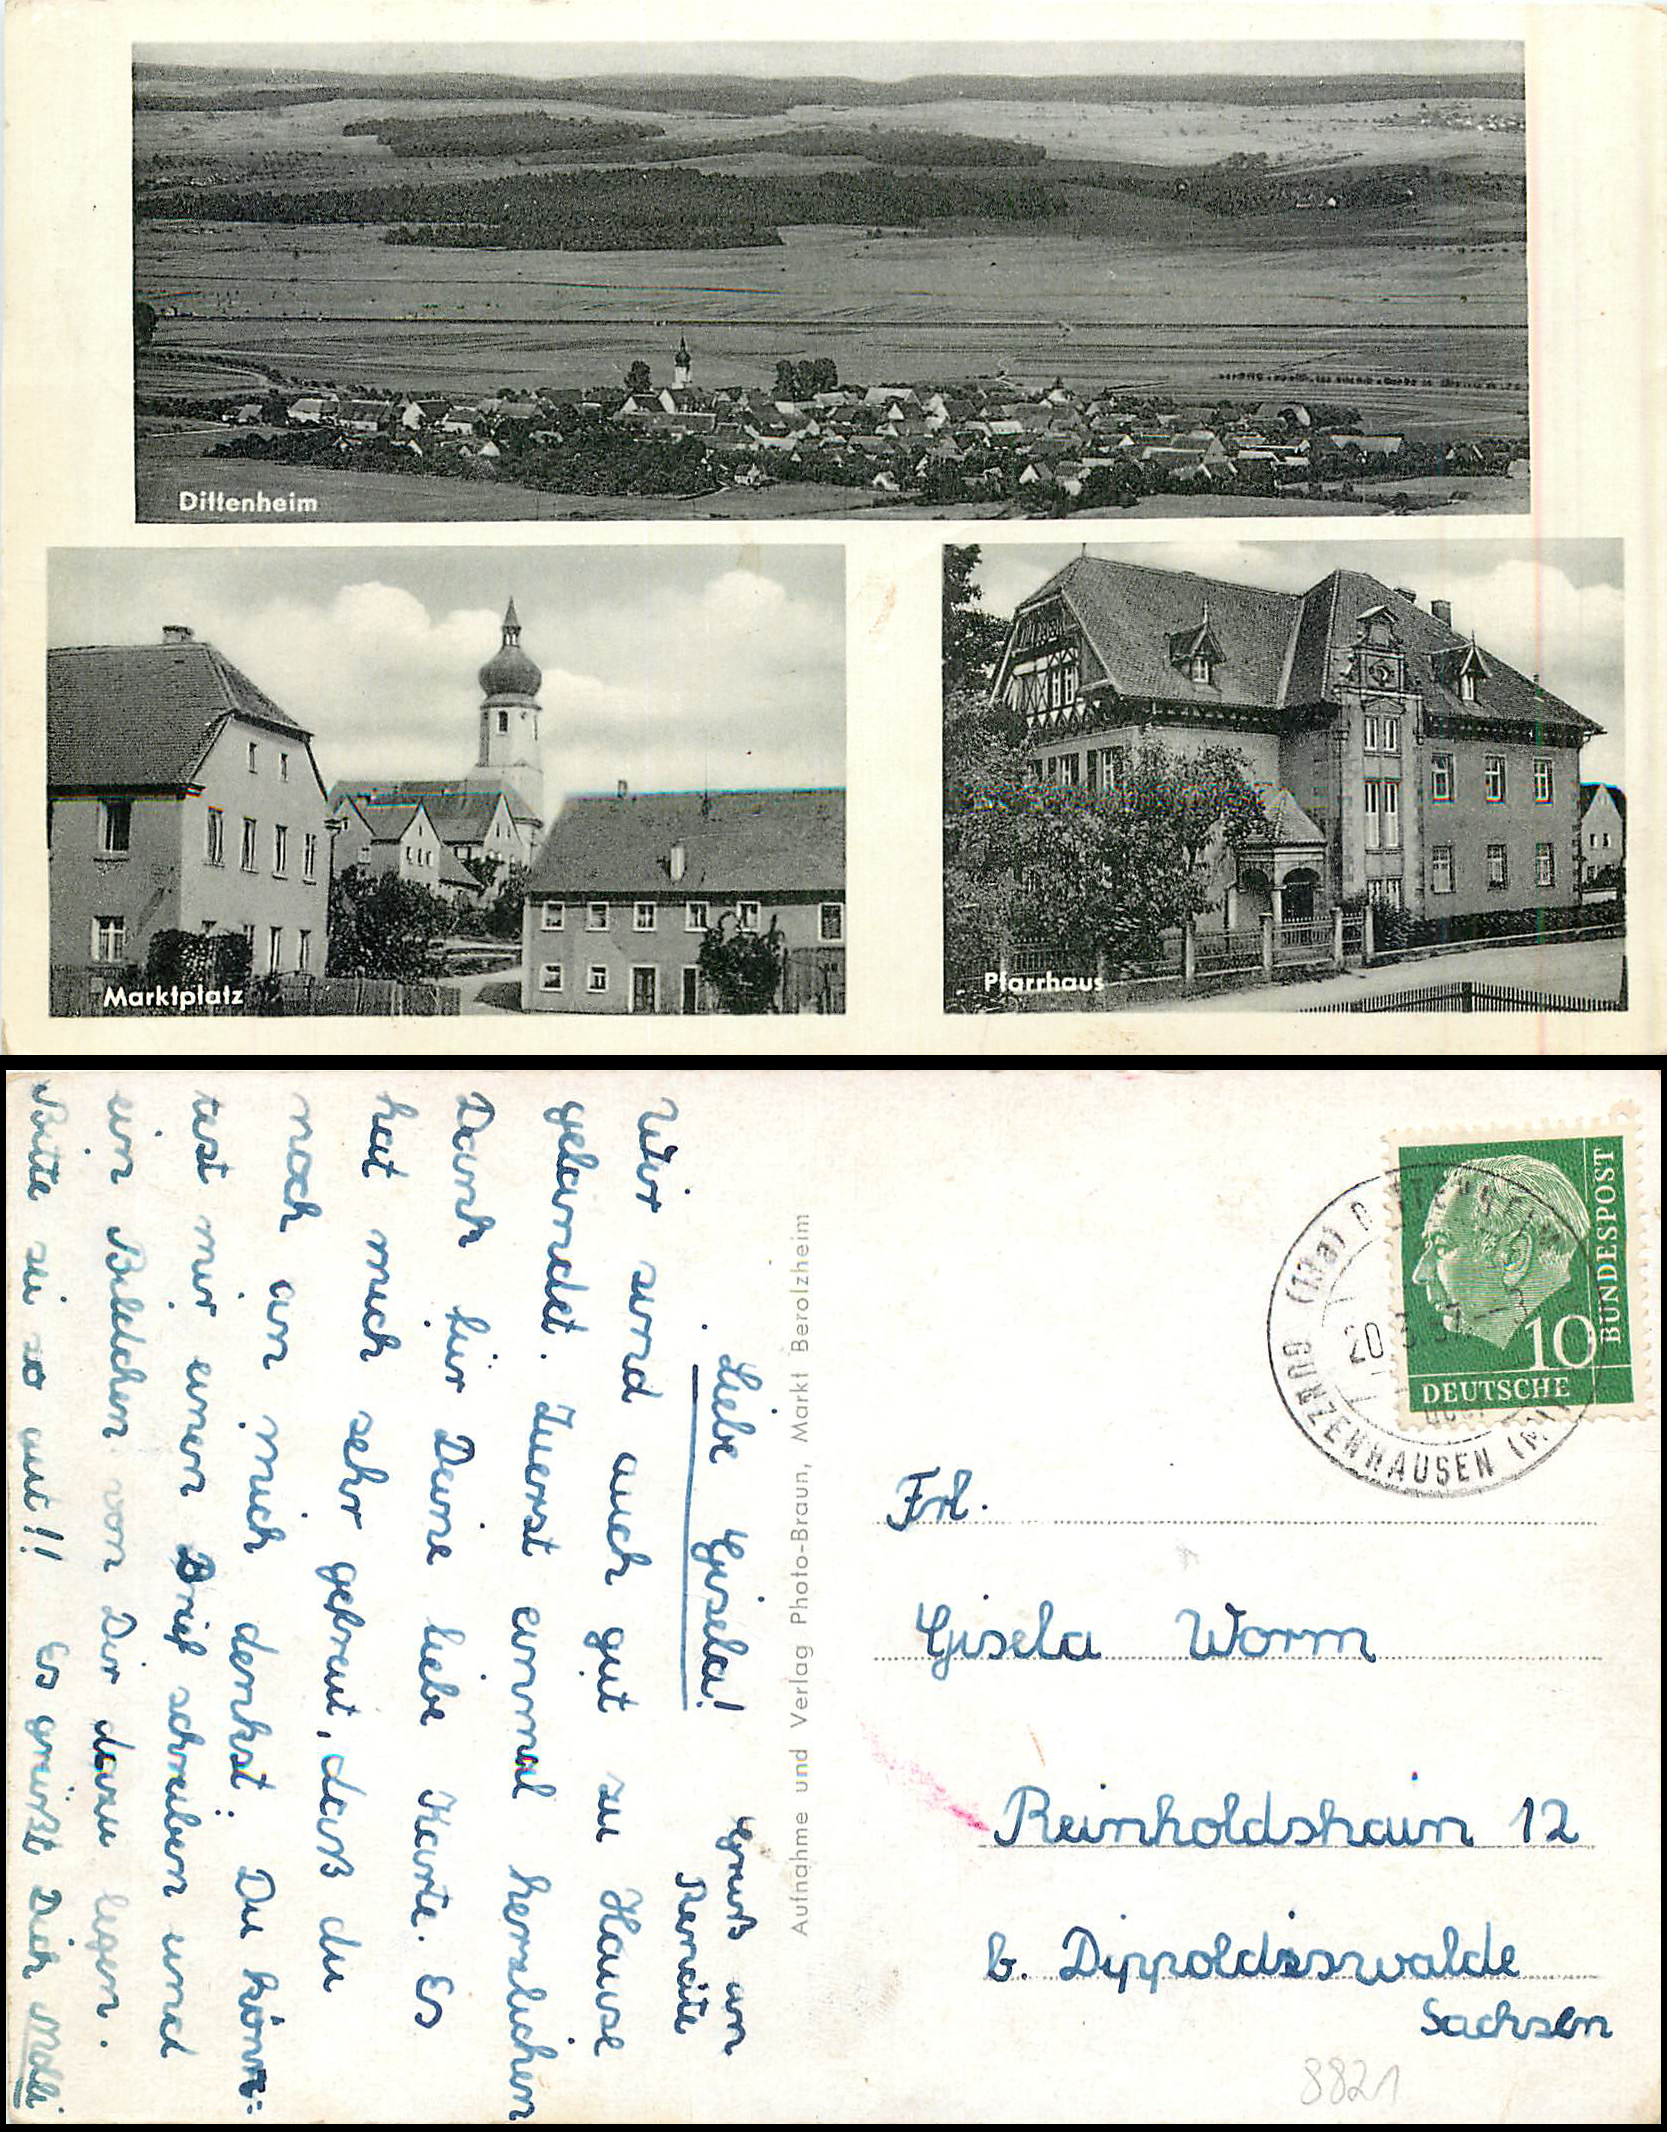 Dittenheim
Marktplatz
Pfarrhaus
Liebe Gisela!
Wir sind auch gut zu Hause
gelandet. Zuerst einmal herzlichen
Dank für Deine liebe Karte. Es
hat mich sehr gefreut, daß du
noch an mich denkst. Du könn-
test mir einen Brief schreiben und
ein Bildchen von Dir dazu legen.
Bitte sei so gut!! Es grüßt Dich Molli
Gruß an
Renate
Aufnahme und Verlag Photo-Braun, Markt Berolzheim
DEUTSCHE
BUNDESPOST
10
(13a)
20
GUNZENHAUSEN
Frl.
Gisela Worm
Reinholdshain 12
b. Dippoldiswalde
Sachsen
8821